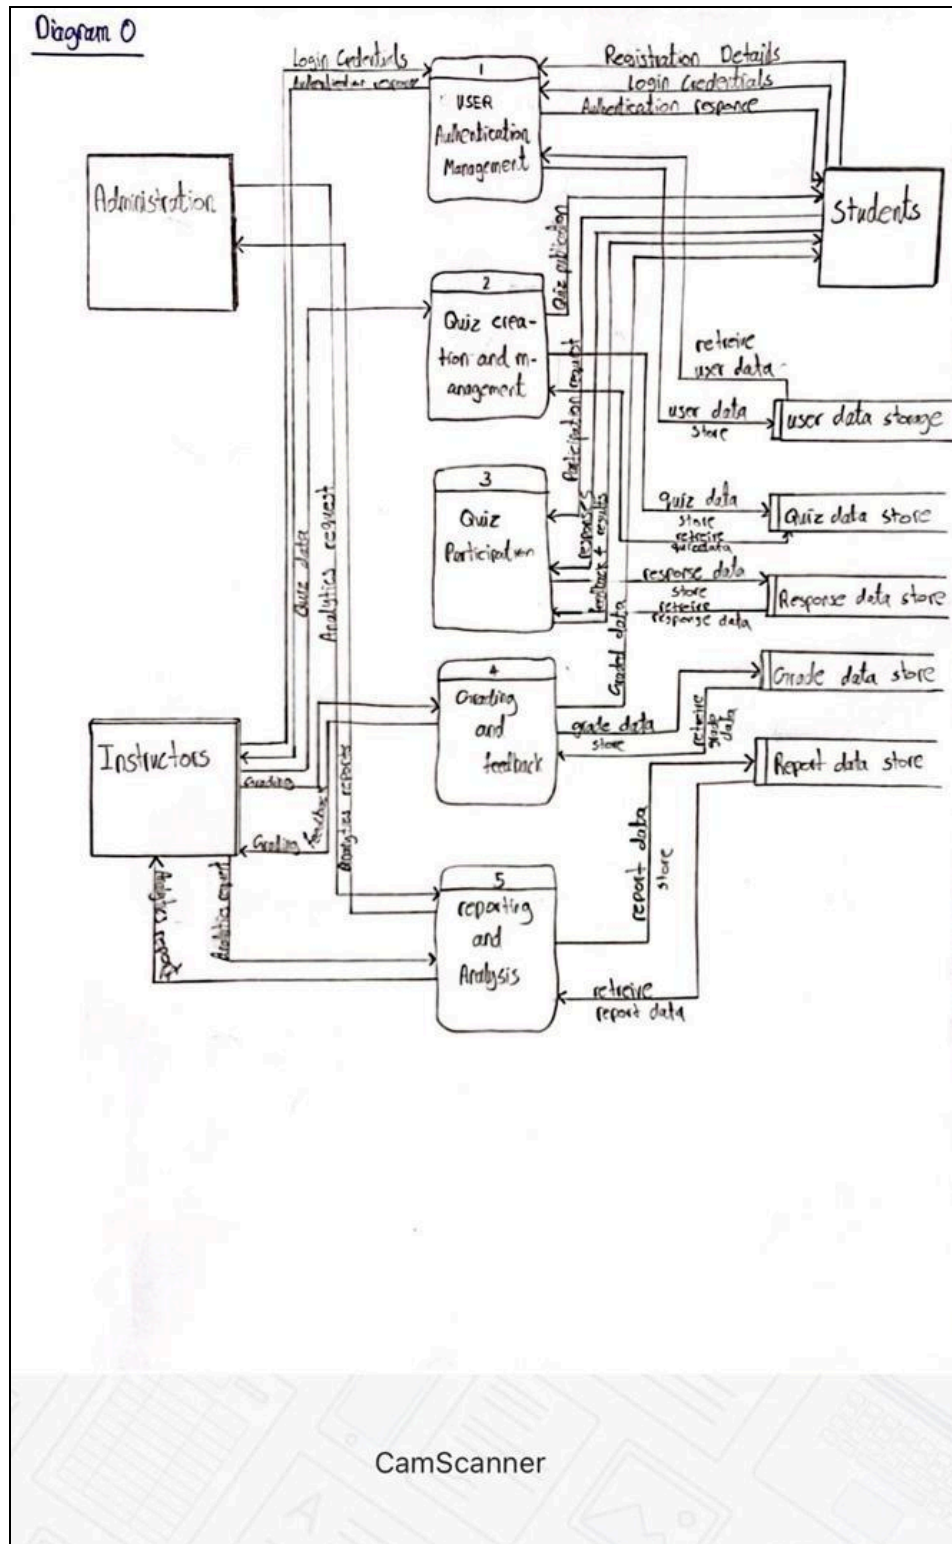 Diagram 0
Login Credentials
Authentication response
Registration Details
Login Credentials
Authentication response
1
USER
Authentication
Management
Administration
Students
Quiz publication
2
Quiz crea-
tion and m-
anagement
Participation request
retreive
user data
user data
store
user data storage
3
Quiz
Participation
responses
feedback + results
quiz data
store
retreive
quizdata
Quiz data store
response data
store
retreive
response data
Response data store
Quiz data
Analytics request
Graded data
4
Grading
and
feedback
grade data
store
retreive
grade
data
Grade data store
Instructors
Grading
Grading
feedback
Analytics reports
report data
store
Report data store
5
reporting
and
Analysis
Analytics request
Analytics reports
retreive
report data
CamScanner